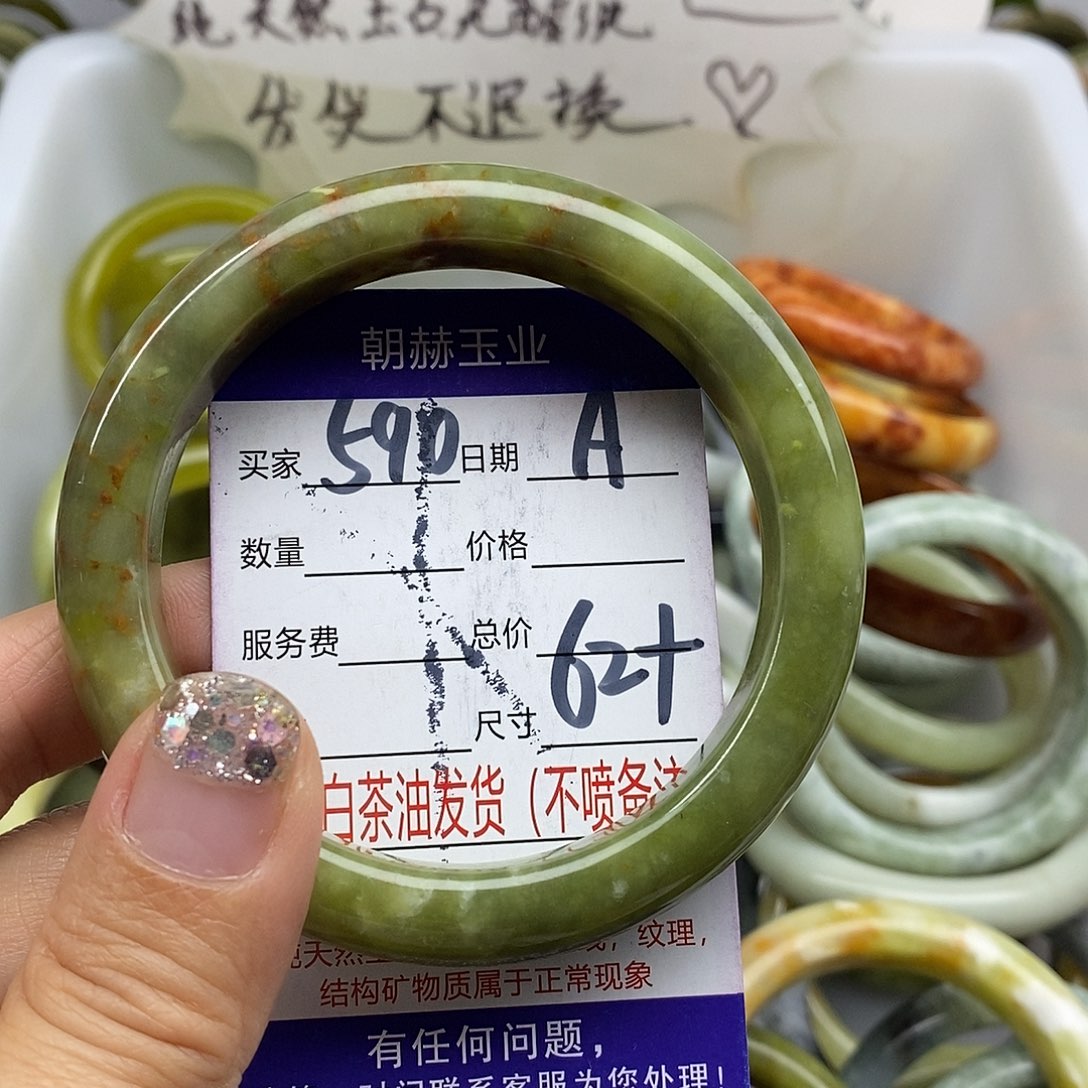 纯天然玉石无
售出不退换
朝赫玉业
买家 590 日期 A
数量 价格
服务费 总价
尺寸 62+
白茶油发货（不喷备注
纯天然玉 纹理，
结构矿物质属于正常现象
有任何问题，
时间联系客服为您处理！